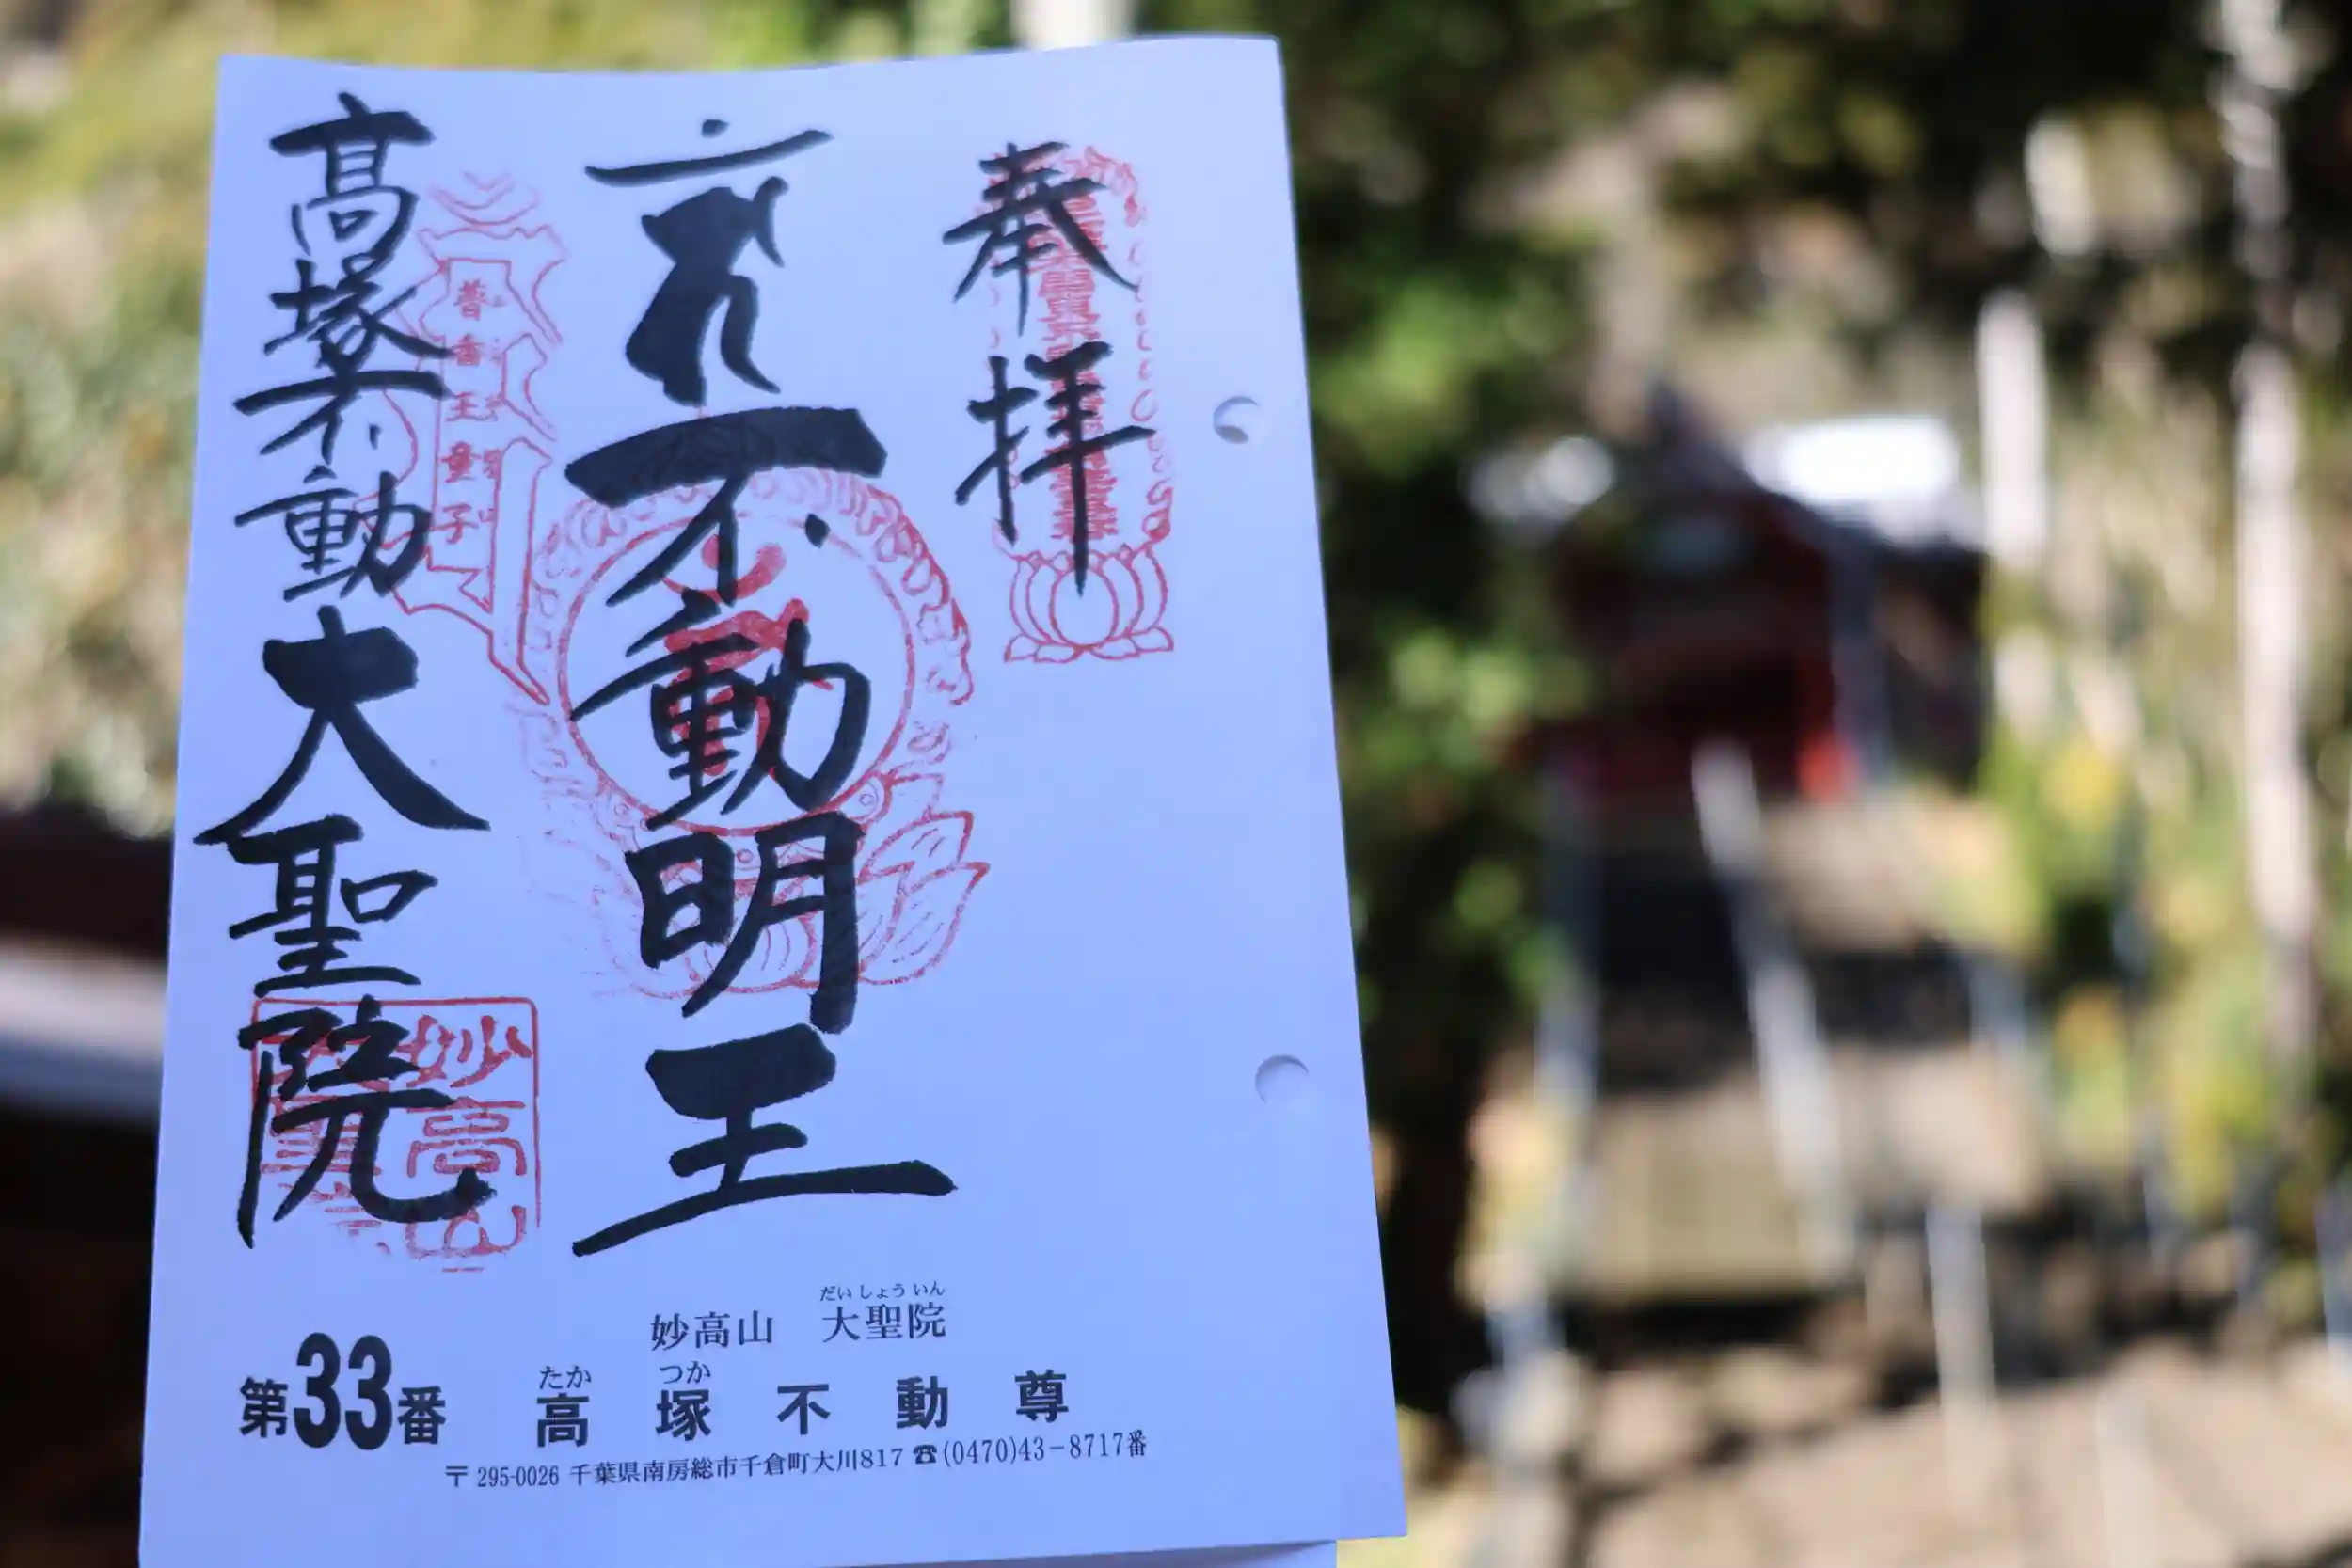 奉拝
不動明王
高塚不動大聖院
普香王童子
妙高山
だいしょういん
妙高山 大聖院
たか つか
第33番 高塚不動尊
〒295-0026 千葉県南房総市千倉町大川817 ☎(0470)43-8717番